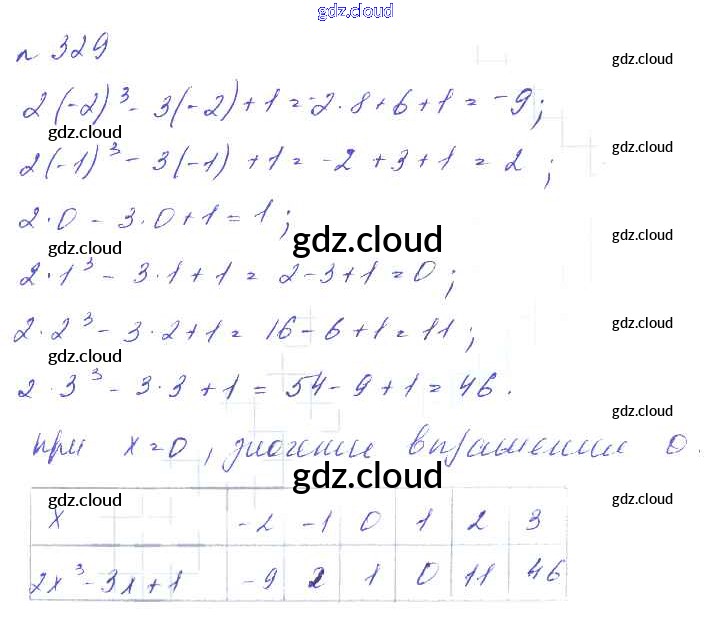 gdz.cloud
n 329
gdz.cloud
2(-2)³ - 3(-2) + 1 = -2·8 + 6 + 1 = -9;
gdz.cloud
gdz.cloud
2(-1)³ - 3(-1) + 1 = -2 + 3 + 1 = 2;
2·0 - 3·0 + 1 = 1;
gdz.cloud
gdz.cloud
gdz.cloud
2·1³ - 3·1 + 1 = 2 - 3 + 1 = 0;
2·2³ - 3·2 + 1 = 16 - 6 + 1 = 11;
gdz.cloud
gdz.cloud
2·3³ - 3·3 + 1 = 54 - 9 + 1 = 46.
gdz.cloud
при x=0, значение выражение 0.
gdz.cloud
gdz.cloud
gdz.cloud
x -2 -1 0 1 2 3
2x³-3x+1 -9 2 1 0 11 46
gdz.cloud
gdz.cloud